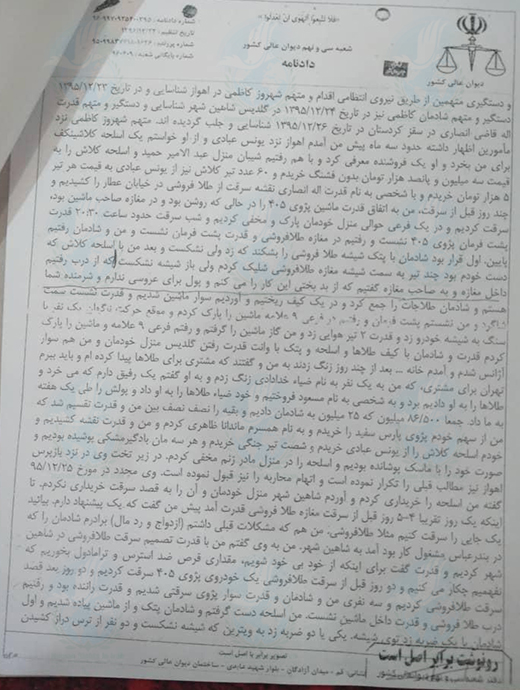 «فلا تتبعوا الهوی ان تعدلوا»
شعبه سی و نهم دیوان عالی کشور
دادنامه
دیوان عالی کشور
شماره دادنامه:
تاریخ تنظیم: ۱۳۹۶/۱۲/۲۳
شماره پرونده:
شماره بایگانی شعبه:
و دستگیری متهمین از طریق نیروی انتظامی اقدام و متهم شهروز کاظمی در اهواز شناسایی و در تاریخ ۱۳۹۵/۱۲/۲۳
دستگیر و متهم شادمان کاظمی نیز در تاریخ ۱۳۹۵/۱۲/۲۴ در گلدیس شاهین شهر شناسایی و دستگیر و متهم قدرت
اله قاضی انصاری در سقز کردستان در تاریخ ۱۳۹۵/۱۲/۲۶ شناسایی و جلب گردیده اند. متهم شهروز کاظمی نزد
مأمورین اظهار داشته حدود سه ماه پیش من آمدم اهواز نزد یونس عبادی و از او خواستم یک اسلحه کلاشینکف
برای من بخرد و او یک فروشنده معرفی کرد و با هم رفتیم شیبان منزل عبد الامیر حمید و اسلحه کلاش را به
قیمت سه میلیون و پانصد هزار تومان بدون فشنگ خریدم و ۶۰ عدد تیر کلاش نیز از یونس عبادی به قیمت هر تیر
۵ هزار تومان خریدم و با شخصی به نام قدرت اله انصاری نقشه سرقت از طلا فروشی در خیابان عطار را کشیدیم و
چند روز قبل از سرقت، من به اتفاق قدرت ماشین پژوی ۴۰۵ را در حالی که روشن بود و در مغازه صاحب ماشین بود،
سرقت کردیم و در یک فرعی حوالی منزل خودمان پارک و مخفی کردیم و شب سرقت حدود ساعت ۲۰:۳۰ قدرت
پشت فرمان پژوی ۴۰۵ نشست و رفتیم در مغازه طلافروشی و قدرت پشت فرمان نشست و من و شادمان رفتیم
پایین. اول قرار بود شادمان با پتک شیشه طلا فروشی را بشکند که زد ولی نشکست و بعد من با اسلحه کلاش که
دست خودم بود چند تیر به سمت شیشه مغازه طلافروشی شلیک کردم ولی باز شیشه نشکست که از درب رفتیم
داخل مغازه و به صاحب مغازه گفتیم که از بد بختی این کار را می کنم و پول برای عروسی ندارم و شرمنده شما
هستم و شادمان طلاجات را جمع کرد و در یک کیف ریختیم و آوردیم سوار ماشین شدیم و قدرت نشست سمت
شاگرد و من نشستم پشت فرمان و رفتم در فرعی ۹ علامه ماشین را پارک کردم و موقع حرکت ناگهان یک نفر با
سنگ به شیشه خودرو زد و قدرت ۲ تیر هوایی زد و من گاز ماشین را گرفتم و رفتم فرعی ۹ علامه و ماشین را پارک
کردم قدرت و شادمان با کیف طلاها و اسلحه و پتک با وانت قدرت رفتن گلدیس منزل خودمان و من هم سوار
آژانس شدم و آمدم خانه ... بعد از چند روز زنگ زدند به من و گفتند که مشتری برای طلاها پیدا کرده ام و باید ببرم
تهران برای مشتری، که من به یک نفر به نام ضیاء خدادادی زنگ زدم و به او گفتم یک رفیق دارم که می خرد و
طلاها را به او دادیم برد و به شخصی به نام مسعود فروختیم و خود ضیاء طلاها را به او داد و پولش را طی یک هفته
به ما داد. جمعا ۸۶/۵۰۰ میلیون که ۲۵ میلیون به شادمان دادیم و بقیه را نصف نصف بین من و قدرت تقسیم شد که
من از سهم خودم پژوی پارس سفید را خریدم و به نام همسرم ماندانا ظاهری کردم و من و قدرت نقشه کشیدیم و
خودم اسلحه کلاش را از یونس عبادی خریدم و شصت تیر جنگی خریدم و هر سه مان بادگیرمشکی پوشیده بودیم و
صورت خود را با ماسک پوشانده بودیم و اسلحه را در منزل مادر زنم مخفی کردم. در زیر تخت وی در نزد بازپرس
اهواز نیز مطالب قبلی را تکرار نموده است و اتهام محاربه را نیز قبول نموده است. وی مجدد در مورخ ۹۵/۱۲/۲۵
گفته من اسلحه را خریداری کردم و آوردم شاهین شهر منزل خودمان و آن را به قصد سرقت خریداری نکردم. تا
اینکه یک روز تقریبا ۴-۵ روز قبل از سرقت مغازه طلا فروشی قدرت آمد پیش من گفت که یک پیشنهاد دارم. بیائید
یک جایی را سرقت کنیم مثلا طلافروشی. من هم که مشکلات قبلی داشتم (ازدواج و رد مال) برادرم شادمان که
در بندرعباس مشغول کار بود آمد به شاهین شهر. من به وی گفتم من با قدرت تصمیم سرقت طلافروشی در شاهین
شهر کردیم و قدرت گفت برای اینکه از خود بی خود شویم، مقداری قرص ضد استرس و ترامادول بخوریم که
نفهمیم چکار می کنیم و دو روز قبل از سرقت طلافروشی یک خودروی پژوی ۴۰۵ سرقت کردیم و دو روز بعد قصد
سرقت طلافروشی کردیم و سه نفری من و شادمان و قدرت سوار پژوی سرقتی شدیم و قدرت راننده بود و رفتیم
درب طلا فروشی و قدرت داخل ماشین نشست. من اسلحه دست گرفتم و شادمان پتک و از ماشین پیاده شدیم و اول
شادمان با یک ضربه زد توی شیشه. یکی یا دو ضربه زد به ویترین که شیشه نشکست و دو نفر از ترس دراز کشیدن
رونوشت برابر اصل است
تصویر برابر با اصل است.
نشانی: قم - میدان آزادگان - بلوار شهید عابدی - ساختمان دیوان عالی کشور